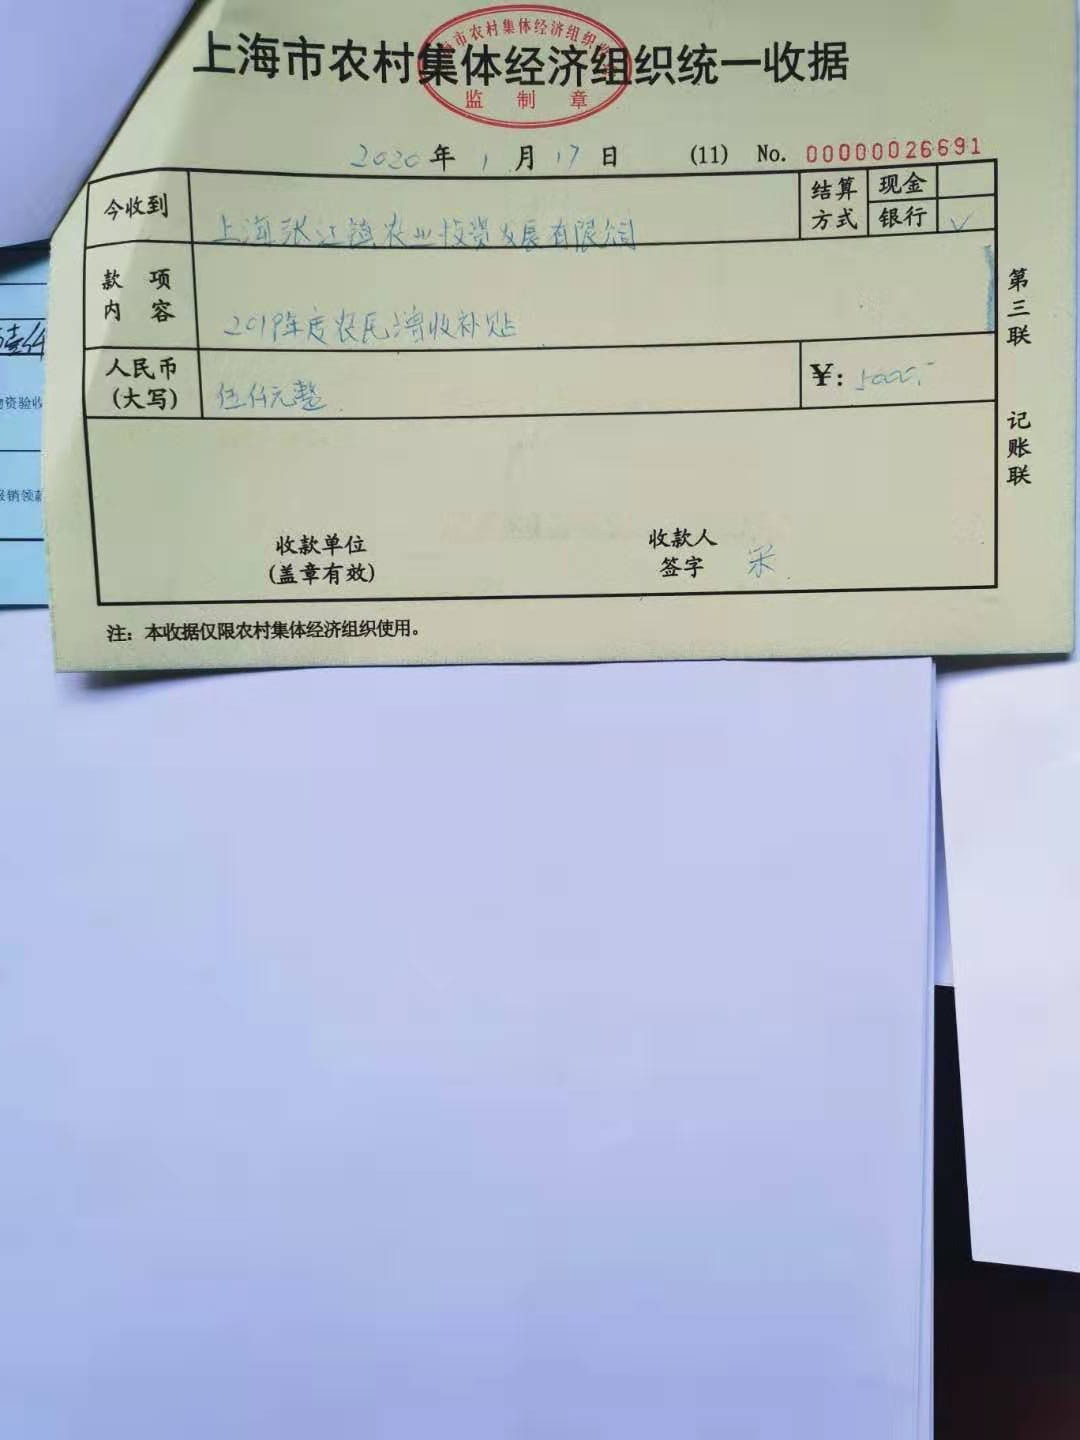 上海市农村集体经济组织统一收据
市农村集体经济组织收
监制章
2020年1月17日 (11) No. 00000026691
今收到 上海张江镇农业投资发展有限公司 结算方式 现金 银行 √
款项内容 2019年度农民增收补贴
人民币(大写) 伍仟元整 ¥: 5000.-
收款单位 收款人
(盖章有效) 签字 宋
注：本收据仅限农村集体经济组织使用。
第三联 记账联
资验收
销领款